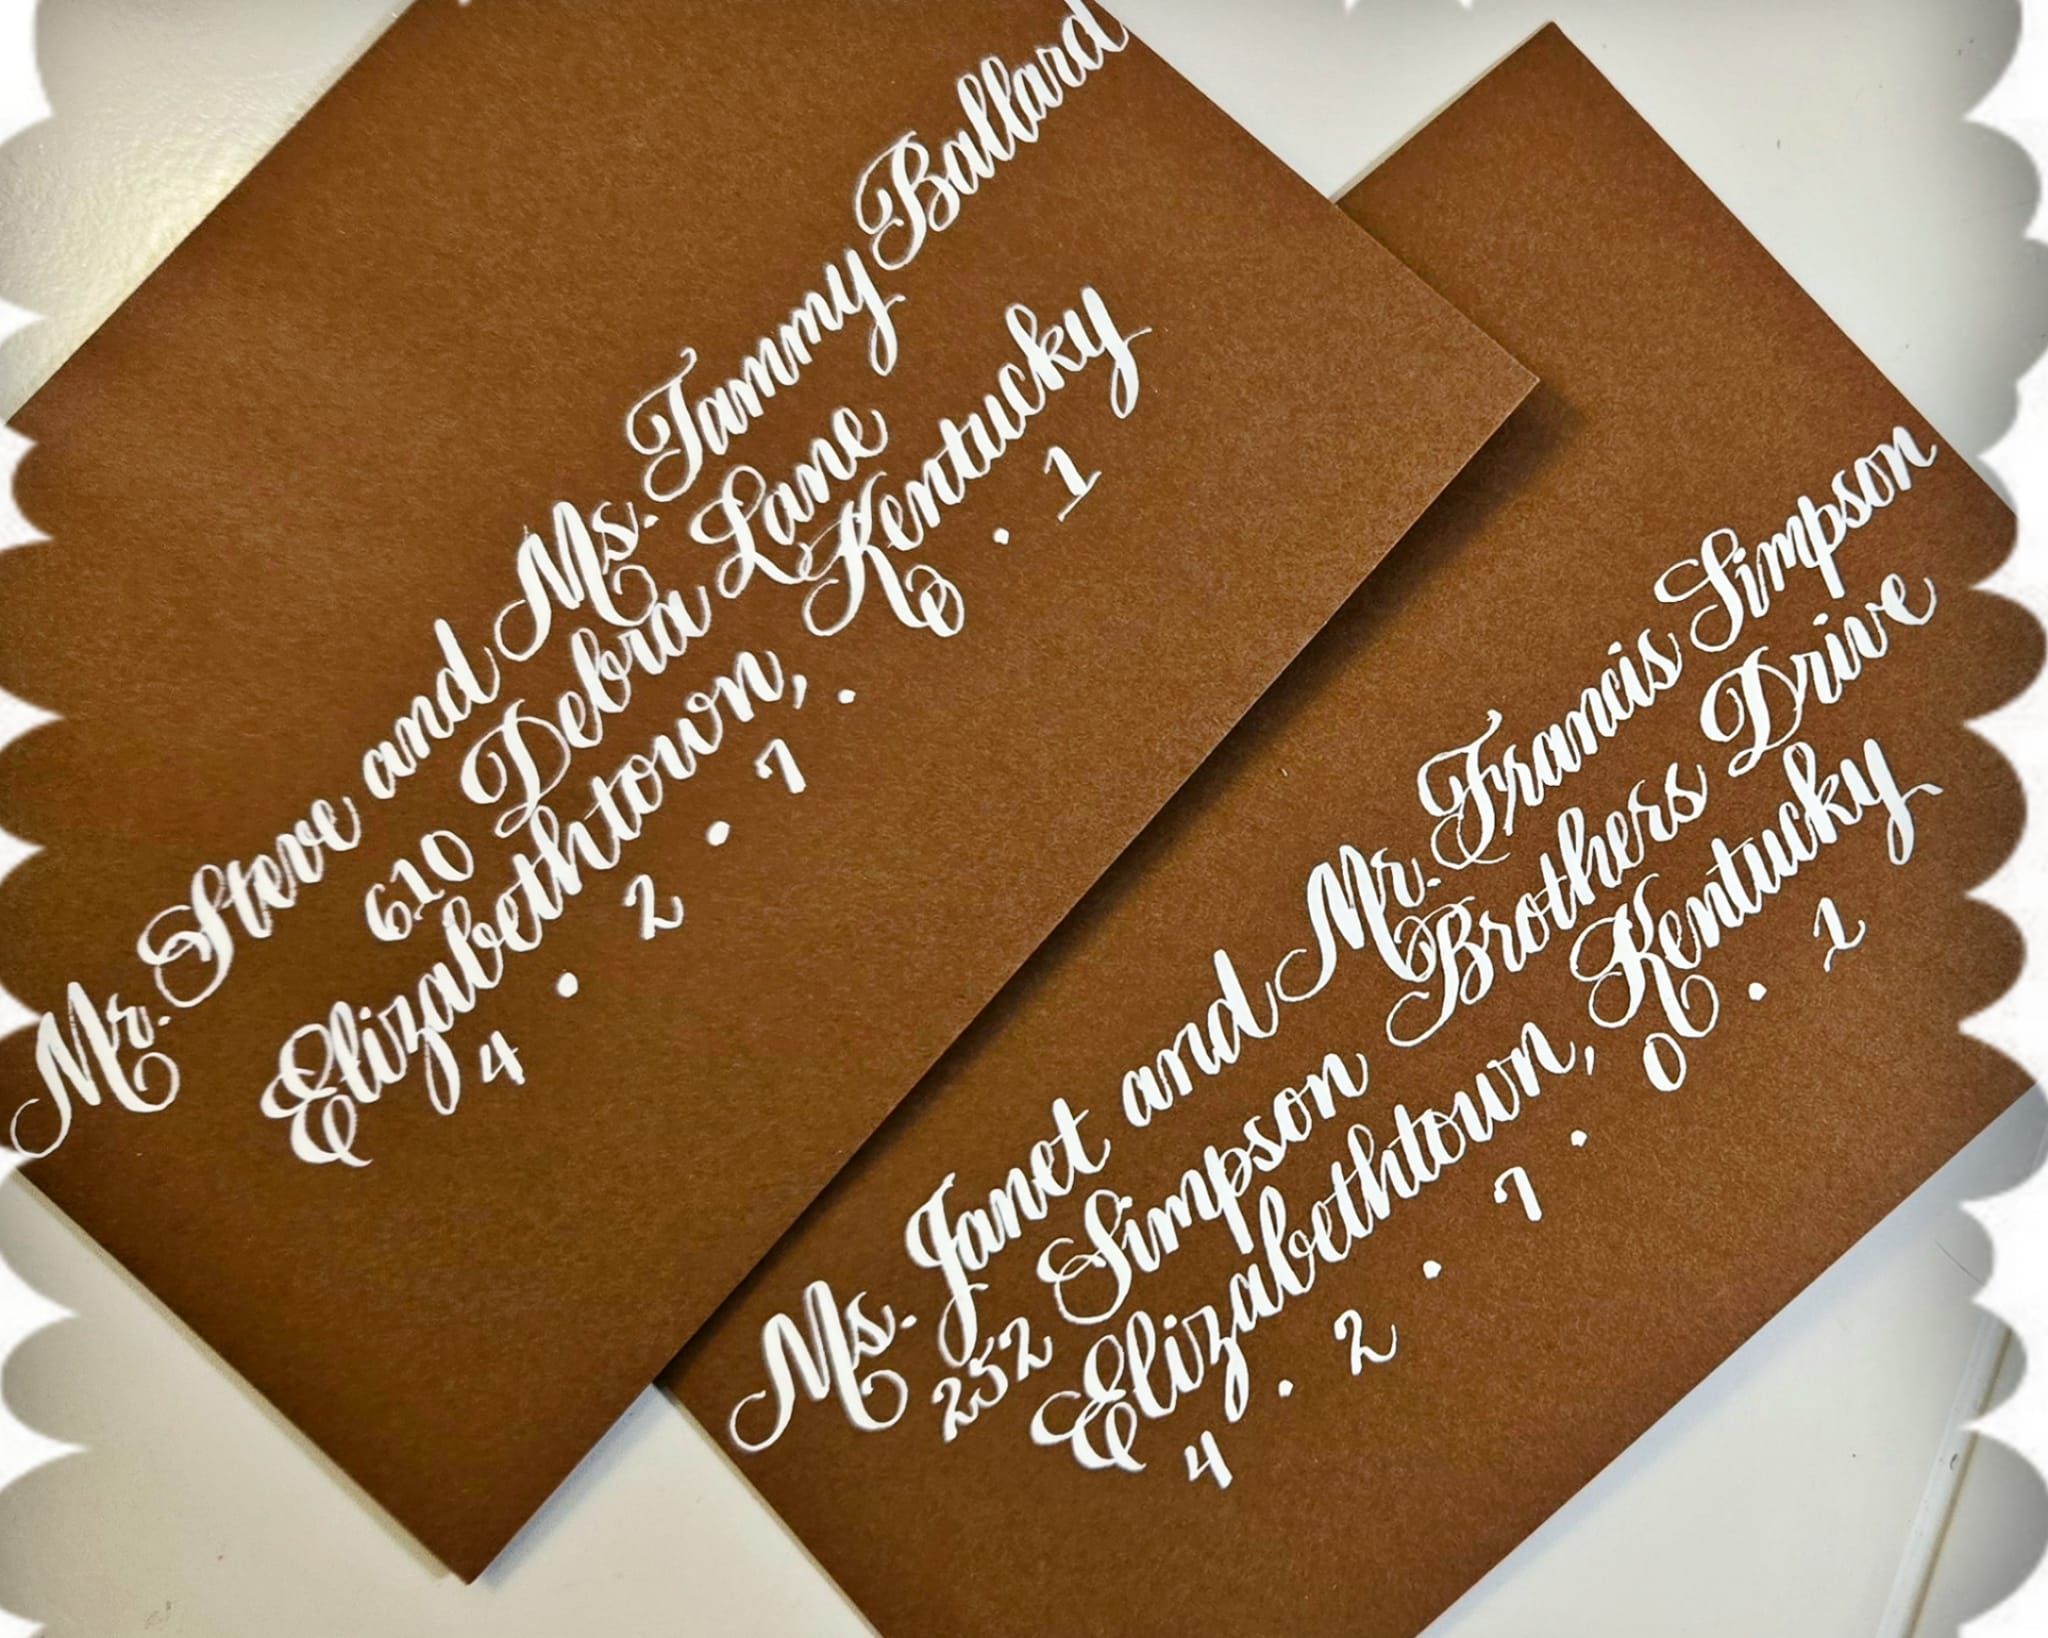 Mr. Steve and Ms. Tammy Ballard
610 Debra Lane
Elizabethtown, Kentucky
4 . 2 . 7 . 0 . 1
Ms. Janet and Mr. Francis Simpson
252 Simpson Brothers Drive
Elizabethtown, Kentucky
4 . 2 . 7 . 0 . 1